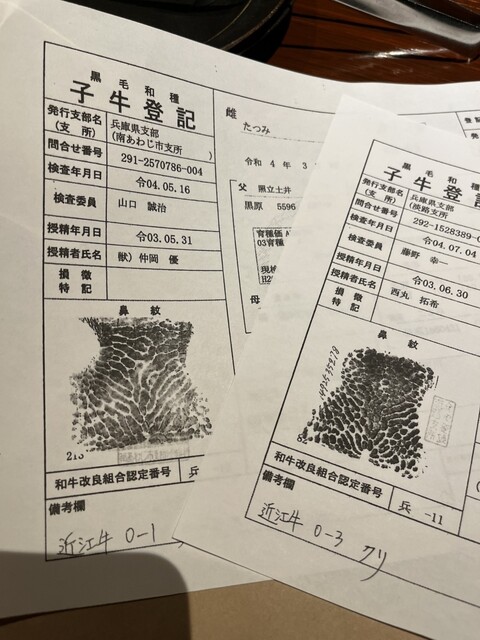 黒毛和種
子牛登記
発行支部名
(支所)
兵庫県支部
(南あわじ市支所)
問合せ番号
291-2570786-004
検査年月日
令04.05.16
検査委員
山口 誠治
授精年月日
令03.05.31
授精者氏名
獣) 仲岡 優
損徴
特記
鼻紋
和牛改良組合認定番号
兵
備考欄
近江牛 0-1
雌
たつみ
令和 4 年 3
父 照立土井
黒原 5596
育種価
03育種
現
母
黒毛和種
子牛登記
発行支部名
(支所)
兵庫県支部
(淡路支所
問合せ番号
292-1528389-0
検査年月日
令04.07.04
検査委員
藤野 幸一
授精年月日
令03.06.30
授精者氏名
西丸 拓希
損徴
特記
鼻紋
和牛改良組合認定番号
兵 -11
備考欄
近江牛 0-3 クリ